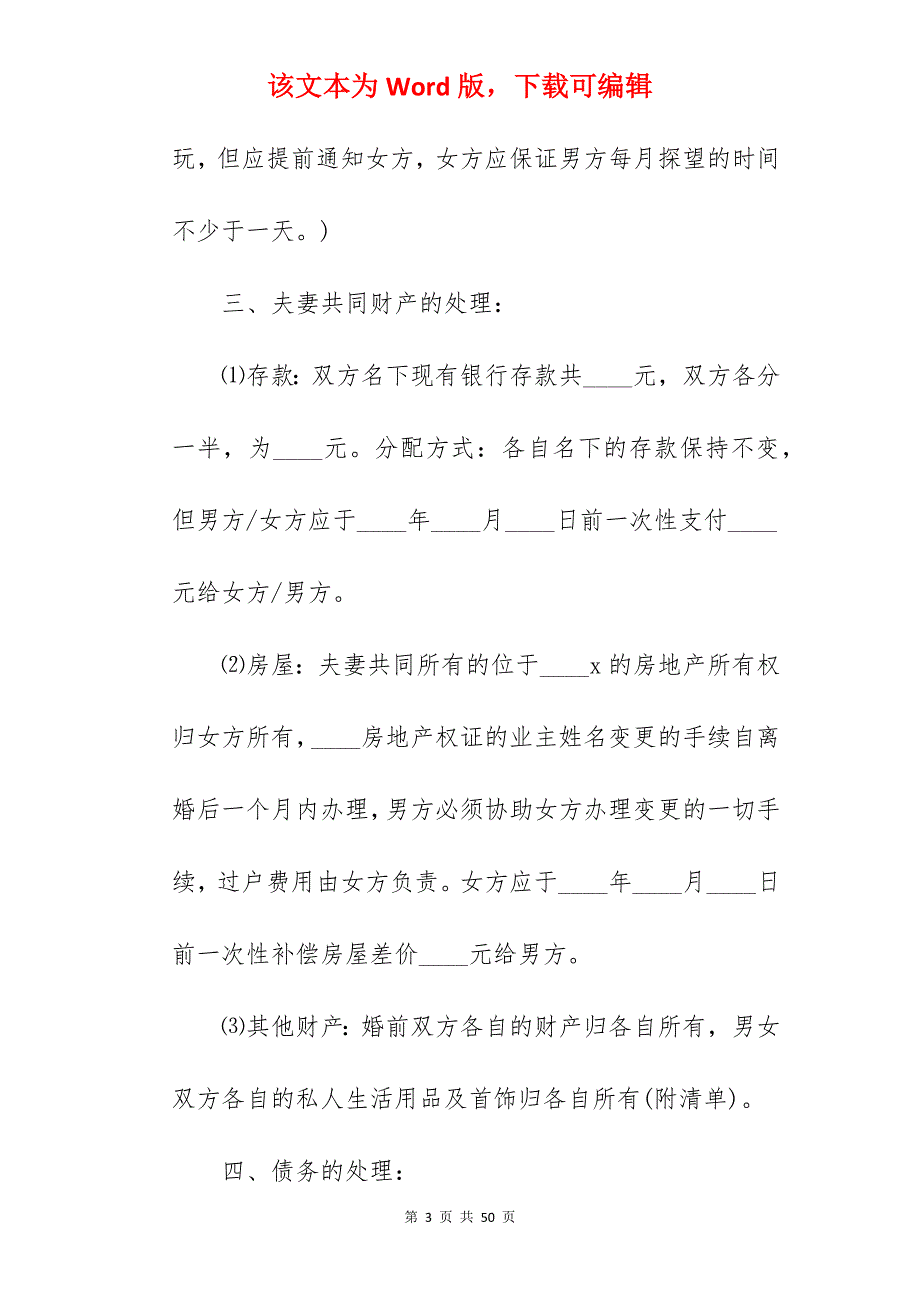 该文本为 Word 版，下载可编辑
玩,但应提前通知女方,女方应保证男方每月探望的时间
不少于一天。)
三、夫妻共同财产的处理：
⑴存款：双方名下现有银行存款共____元，双方各分
一半，为____元。分配方式：各自名下的存款保持不变，
但男方/女方应于____年____月____日前一次性支付____
元给女方/男方。
⑵房屋：夫妻共同所有的位于____x 的房地产所有权
归女方所有,____房地产权证的业主姓名变更的手续自离
婚后一个月内办理,男方必须协助女方办理变更的一切手
续，过户费用由女方负责。女方应于____年____月____日
前一次性补偿房屋差价____元给男方。
⑶其他财产：婚前双方各自的财产归各自所有，男女
双方各自的私人生活用品及首饰归各自所有(附清单)。
四、债务的处理：
第 3 页 共 50 页